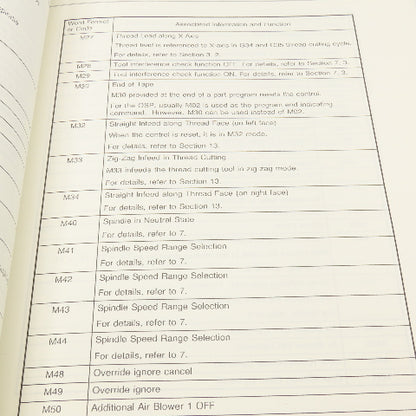 Word Format or Code
Associated Information and Function
M27
Thread Lead along X-Axis
Thread lead is referenced to X-axis in G34 and G35 thread cutting cycle.
For details, refer to Section 3. 2.
M28
Tool interference check function OFF. For details, refer to Section 7. 3.
M29
Tool interference check function ON. For details, refer to Section 7. 3.
M30
End of Tape
M30 provided at the end of a part program resets the control.
For the OSP, usually M02 is used as the program end indicating
command. However, M30 can be used instead of M02.
M32
Straight Infeed along Thread Face (on left face)
When the control is reset, it is in M32 mode.
For details, refer to Section 13.
M33
Zig-Zag Infeed in Thread Cutting
M33 infeeds the thread cutting tool in zig-zag mode.
For details, refer to Section 13.
M34
Straight Infeed along Thread Face (on right face)
For details, refer to Section 13.
M40
Spindle in Neutral State
For details, refer to 7.
M41
Spindle Speed Range Selection
For details, refer to 7.
M42
Spindle Speed Range Selection
For details, refer to 7.
M43
Spindle Speed Range Selection
For details, refer to 7.
M44
Spindle Speed Range Selection
For details, refer to 7.
M48
Override ignore cancel
M49
Override ignore
M50
Additional Air Blower 1 OFF